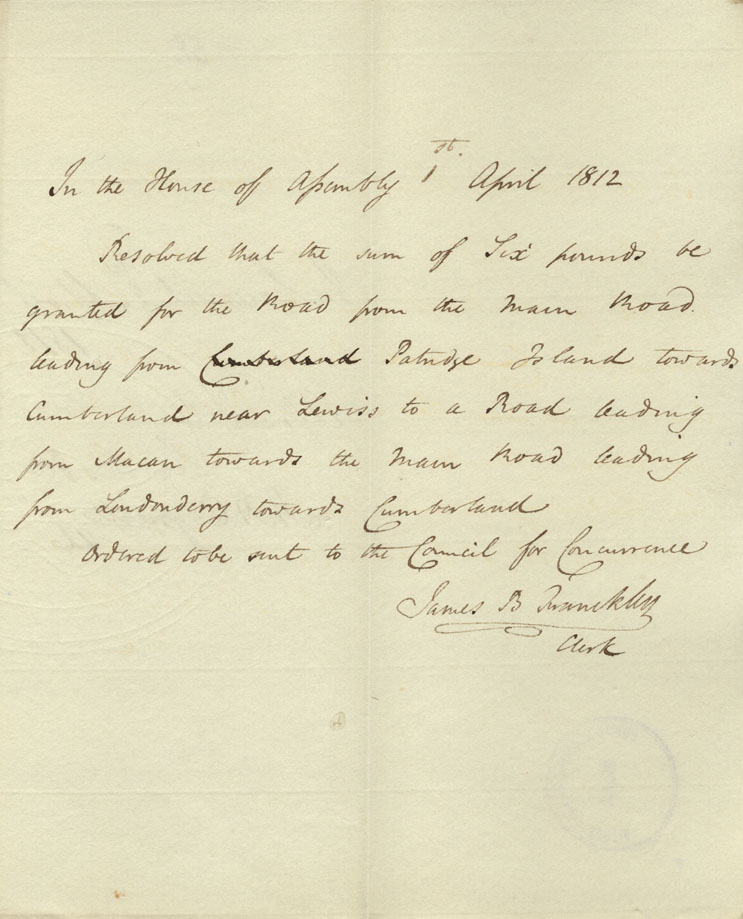 In the House of Assembly 1st. April 1812
Resolved that the sum of Six pounds be
granted for the Road from the Main Road
leading from Cumberland Patridge Island towards
Cumberland near Lewiss to a Road leading
from Macan towards the Main Road leading
from Londonderry towards Cumberland
Ordered to be sent to the Council for Concurrence
James B Franckling
Clerk